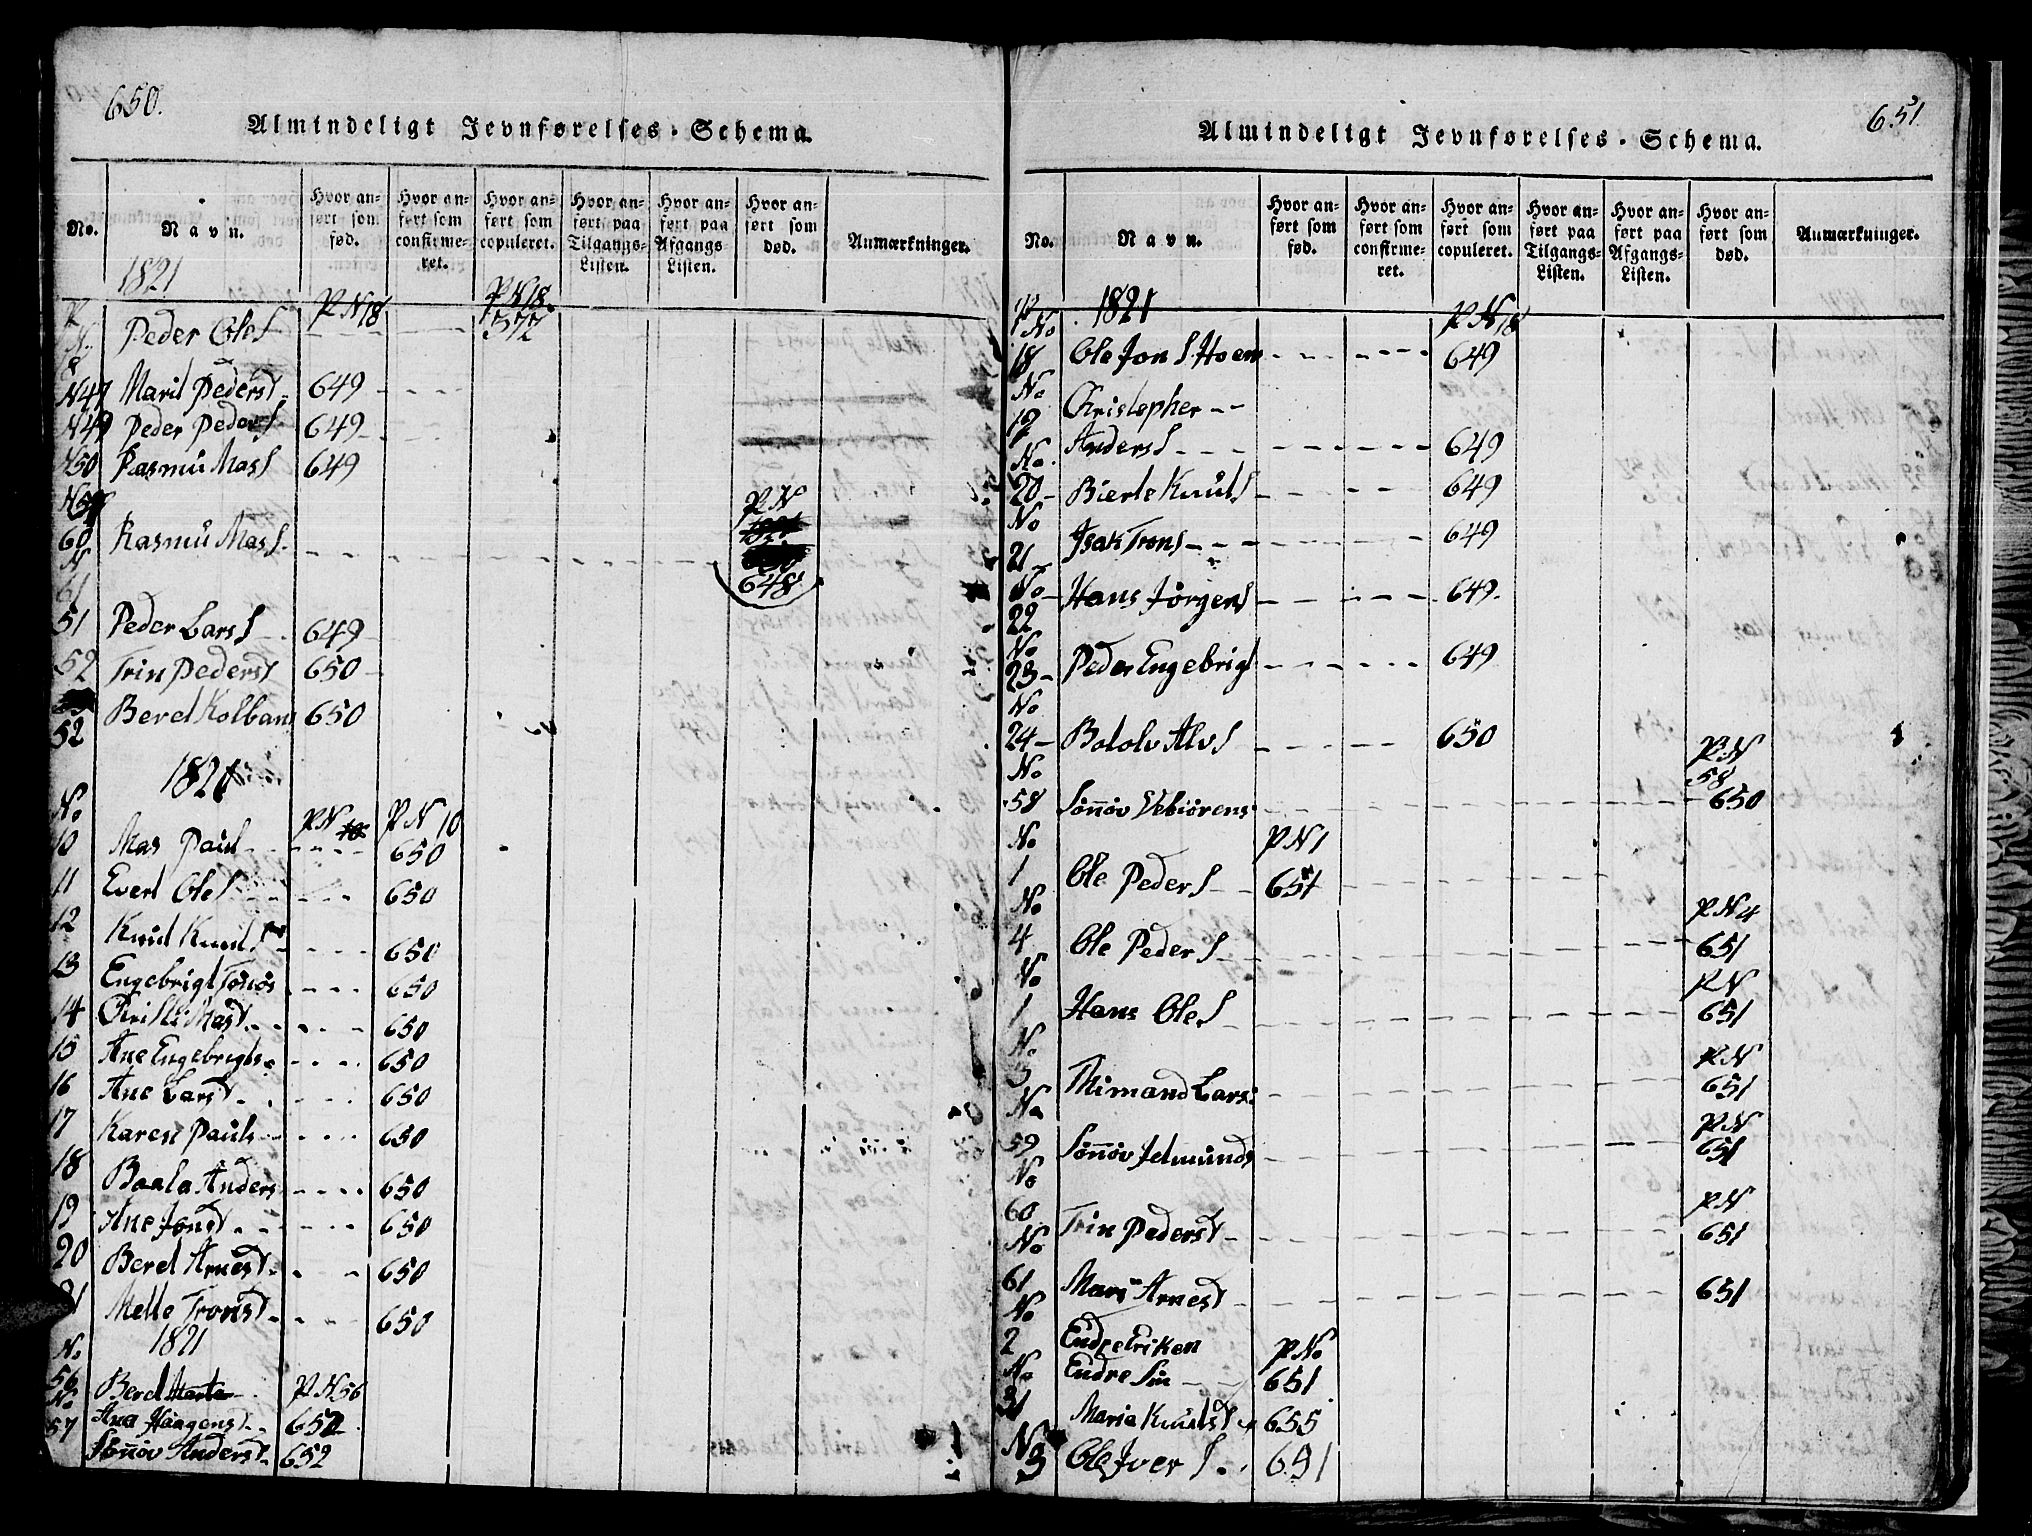 650.
Almindeligt Jevnførelses-Schema.
No.
Navn.
Hvor anført som fød.
Hvor anført som confirmeret.
Hvor anført som copuleret.
Hvor anført paa Tilgangs-Listen.
Hvor anført paa Afgangs-Listen.
Hvor anført som død.
Anmærkninger.
1821
Peder Ole S P N 18 - - - P N 18. 572
N 47 Marit Pedersd. 649 - - -
N 49 Peder Peder S 649 - -
N 50 Rasmu Mas S 649
60 Rasmu Mas S. - - - P N 648
N 61
51 Peder Lars S - . 649 -
52 Trin Pedersd 650 -
52 Beret Kolbans 650
1821
No P N P N 10
10 Mas Paul - - - - 650
11 Evert Ole S - - - 650
12 Knud Knud S - - - - 650
13 Engebrigt - - - 650
14 Christi Masd. - - - 650
15 Ane Engebrigts. - - - 650
16 Ane Larsd. - - - 650
17 Karen Pauls - - - 650
18 Baala Anders - - - - 650
19 Ane Jonsd. - - - 650
20 Beret Arnesd. - - 650
21 Melle Tronsd. - - - 650
1821
No
56 Beret Marta - P N 56
No Ana Haagensd. 652
57 Sönöv Andersd. 652
651
Almindeligt Jevnførelses-Schema.
No.
Navn.
Hvor anført som fød.
Hvor anført som confirmeret.
Hvor anført som copuleret.
Hvor anført paa Tilgangs-Listen.
Hvor anført paa Afgangs-Listen.
Hvor anført som død.
Anmærkninger.
1821 P N 18
No
18 Ole Jon S. Hoem - - - - 649
No Christopher - -
19 Anders S - - - - 649
No.
20 - Bierte Knuts S - - - 649
No
21 - Isak Trons - - - 649
No -
22 Hans Jörgens - - - 649.
No
23 - Peder Engebrigt - - - 649
No
24 - Bololv Alv S - - - 650
No P. N 58
58 Sönöv Vebiörens - - - 650
No P N 1
1 Ole Peder S - - 651 - - -
No P N 4
4 Ole Peder S - - - 651
No P N
1 Hans Ole S - - - 651
No P N
3 Thimand Lars: - - - 651
No P N
59 Sönöv Jetmunds - - - 651
No P N
60 Trin Pedersd - - - 651
No
61 Mari Arnesd - - - 651
No
2 Endre Eriksen P No
No Endre Sin - - 651
31 Maria Knutsd. 655
No
3 Ole Iver S. . 651